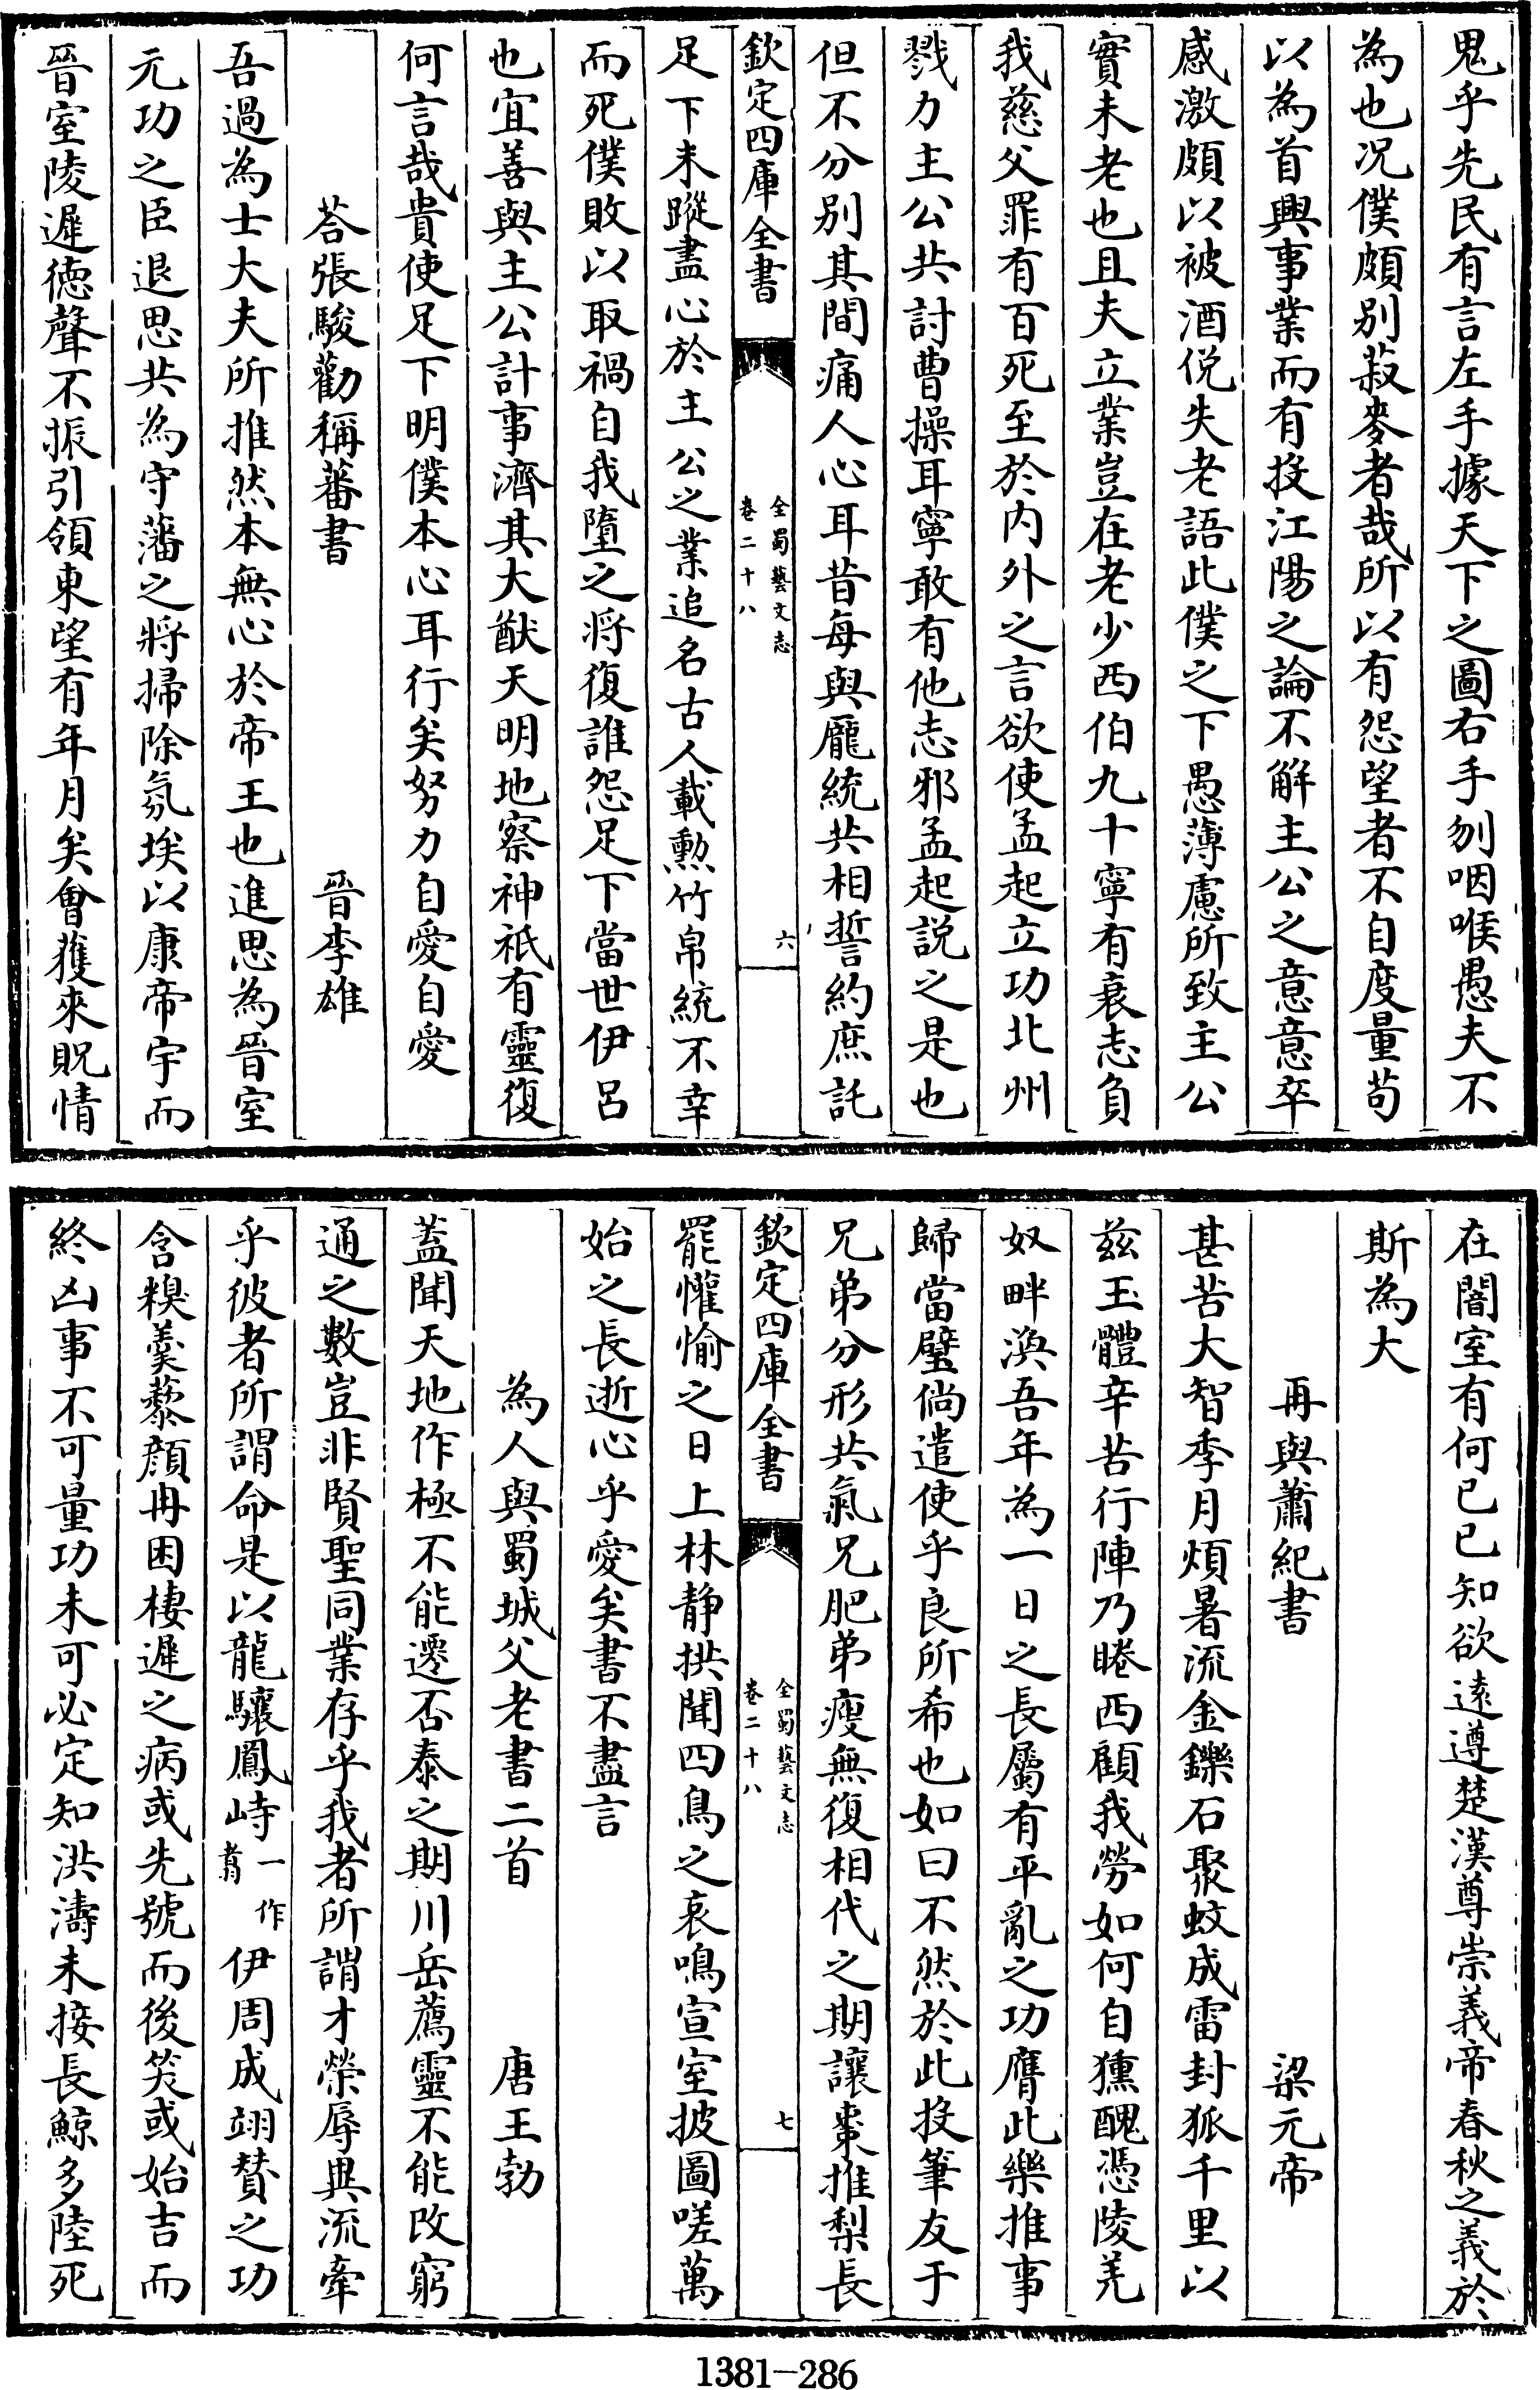 鬼乎先民有言左手據天下之圖右手刎咽喉愚夫不
為也况僕頗别菽麥者哉所以有怨望者不自度量苟
以為首興事業而有投江陽之論不解主公之意意卒
感激頗以被酒侻失老語此僕之下愚薄慮所致主公
實未老也且夫立業豈在老少西伯九十寧有衰志負
我慈父罪有百死至於内外之言欲使孟起立功北州
戮力主公共討曹操耳寧敢有他志邪孟起説之是也
但不分别其間痛人心耳昔每與龐統共相誓約庶託
欽定四庫全書
全蜀藝文志
卷二十八
六
足下末蹤盡心於主公之業追名古人載勲竹帛統不幸
而死僕敗以取禍自我墮之將復誰怨足下當世伊呂
也宜善與主公計事濟其大猷天明地察神祇有靈復
何言哉貴使足下明僕本心耳行矣努力自愛自愛
荅張駿勸稱蕃書 晉李雄
吾過為士大夫所推然本無心於帝王也進思為晉室
元功之臣退思共為守藩之將掃除氛埃以康帝宇而
晉室陵遲德聲不振引領東望有年月矣會獲來貺情
在闇室有何已已知欲遠遵楚漢尊崇義帝春秋之義於
斯為大
再與蕭紀書 梁元帝
甚苦大智季月煩暑流金鑠石聚蚊成雷封狐千里以
兹玉體辛苦行陣乃睠西顧我勞如何自獯醜憑陵羌
奴畔渙吾年為一日之長屬有平亂之功膺此樂推事
歸當璧倘遣使乎良所希也如曰不然於此投筆友于
兄弟分形共氣兄肥弟瘦無復相代之期讓棗推梨長
欽定四庫全書
全蜀藝文志
卷二十八
七
罷懽愉之日上林静拱聞四鳥之哀鳴宣室披圖嗟萬
始之長逝心乎愛矣書不盡言
為人與蜀城父老書二首 唐王勃
蓋聞天地作極不能遷否泰之期川岳薦靈不能改窮
通之數豈非賢聖同業存乎我者所謂才榮辱異流牽
乎彼者所謂命是以龍驤鳳峙一作翥伊周成翊賛之功
含糗羹藜顔冉困棲遲之病或先號而後笑或始吉而
終凶事不可量功未可必定知洪濤未接長鯨多陸死
1381-286